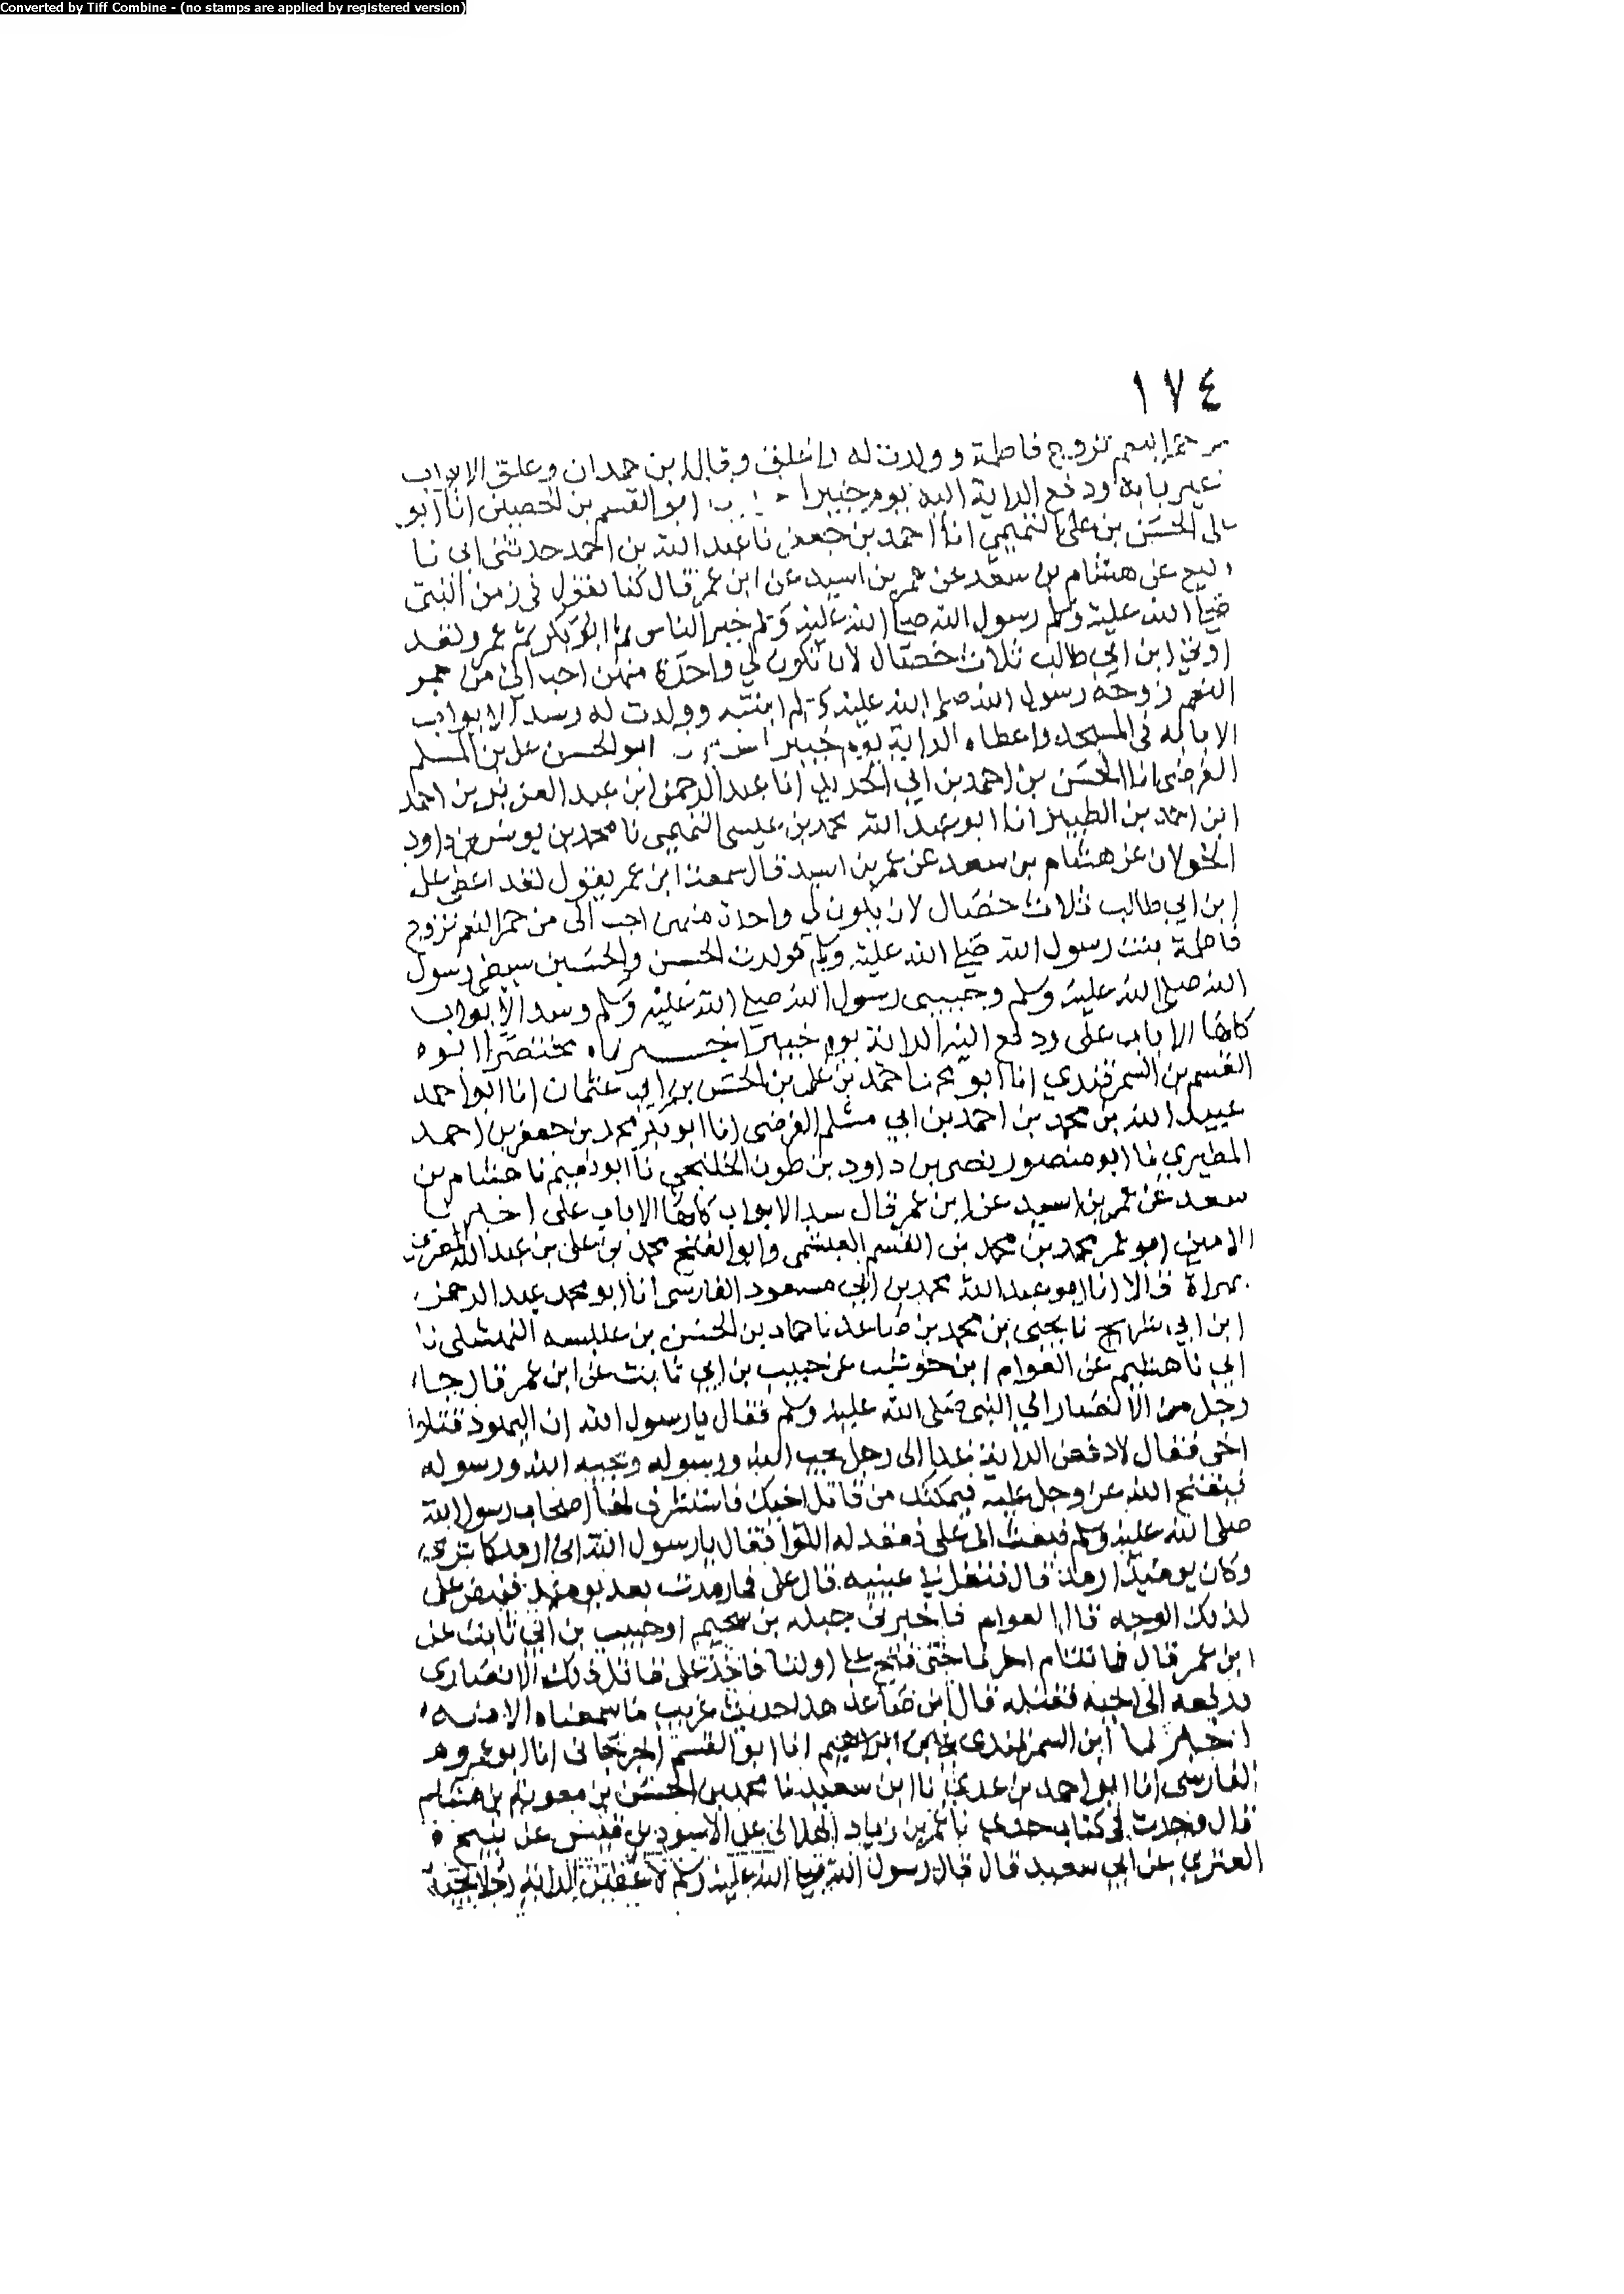 Converted by Tiff Combine - (no stamps are applied by registered version)
١٧٤
حمر النعم تزوج فاطمة وولدت له واغلق وقال ابن حمدان وعلق الابواب
غير بابه ودفع الراية اليه يوم خيبر ابو القسم بن الحصين انا ابو
على الحسن بن على التميمي انا احمد بن جعفر نا عبد الله بن احمد حدثنى ابى نا
وكيع عن هشام بن سعد عن عمر بن اسيد عن ابن عمر قال كنا نقول فى زمن النبى
صلى الله عليه وسلم رسول الله صلى الله عليه وسلم خير الناس ثم ابو بكر ثم عمر ولقد
اوتى ابن ابي طالب ثلاث خصال لان تكون لي واحدة منهن احب الى من حمر
النعم زوجه رسول الله صلى الله عليه وسلم ابنته وولدت له وسد الابواب
الا بابه فى المسجد واعطاه الراية يوم خيبر ابو الحسن على بن المسلم
الفرضى انا الحسن بن احمد بن ابي الحديد انا عبد الرحمن ابن عبد العزيز بن احمد
ابن احمد بن الطبيز انا ابو عبد الله محمد بن عيسى التميمى نا محمد بن يونس بن داود
الخولان عن هشام بن سعد عن عمر بن اسيد قال سمعت ابن عمر يقول لقد اعطى على
ابن ابي طالب ثلاث خصال لان يكون لي واحدة منهن احب الى من حمر النعم تزوج
فاطمة بنت رسول الله صلى الله عليه وسلم فولدت الحسن والحسين سبطى رسول
الله صلى الله عليه وسلم وحبيبى رسول الله صلى الله عليه وسلم وسد الابواب
كلها الا باب على ودفع اليه الراية يوم خيبر اخبرناه مختصرا ابوه
القسم بن السمرقندي انا ابو محمد احمد بن على بن الحسن بن ابي عثمان انا ابو احمد
عبيد الله بن محمد بن احمد بن ابي مسلم الفرضى انا ابو بكر محمد بن جعفر بن احمد
المطيري نا ابو منصور نصر بن داود بن طوق الخلنجي نا ابو نعيم نا هشام بن
سعد عن عمر بن اسيد عن ابن عمر قال سد الابواب كلها الا باب على اخبرنا
الامين ابو عمر محمد بن محمد بن القسم العبشمى وابو الفتح محمد بن على بن عبد الله المصرى
بهراة قالا انا ابو عبد الله محمد بن ابي مسعود الفارسى انا ابو محمد عبد الرحمن
ابن ابي شريح نا يحيى بن محمد بن صاعد نا حماد بن الحسن بن عنبسه النهشلى نا
ابي نا هشيم عن العوام ابن حوشب عن حبيب بن ابي ثابت عن ابن عمر قال جاء
رجل من الانصار الي النبى صلى الله عليه وسلم فقال يا رسول الله ان اليهود قتلوا
اخى فقال لادفعن الراية غدا الى رجل يحب الله ورسوله ويحبه الله ورسوله
فيفتح الله عز وجل عليه فيمكنك من قاتل اخيك فاستشرف لها اصحاب رسول الله
صلى الله عليه وسلم فبعث الى على فعقد له اللوا فقال يا رسول الله انى ارمد كما ترى
وكان يومئذ ارمد قال فتفل في عينيه قال على فما رمدت بعد يومئذ فمضى على
لذلك الوجه قال العوام فاخبرنى جبله بن سحيم او حبيب بن ابي ثابت عن
ابن عمر قال فما تتام اخرنا حتى فتح على اولنا فاخذ على قاتل ذلك الانصارى
فدفعه الى اخيه فقتله قال ابن صاعد هذا حديث غريب ما سمعناه الا منه
اخبرنا ابن السمرقندى انا ابو القسم الجرجانى انا ابو عمرو
الفارسى انا ابو احمد بن عدي نا ابن سعيد نا محمد بن الحسن بن معويه بن هشام
قال وجدت في كتاب جدى نا عمر بن زياد الهلالى عن الاسود بن قيس عن نبيح
العنزي عن ابي سعيد قال قال رسول الله صلى الله عليه وسلم لاعطين الراية رجلا يحبه